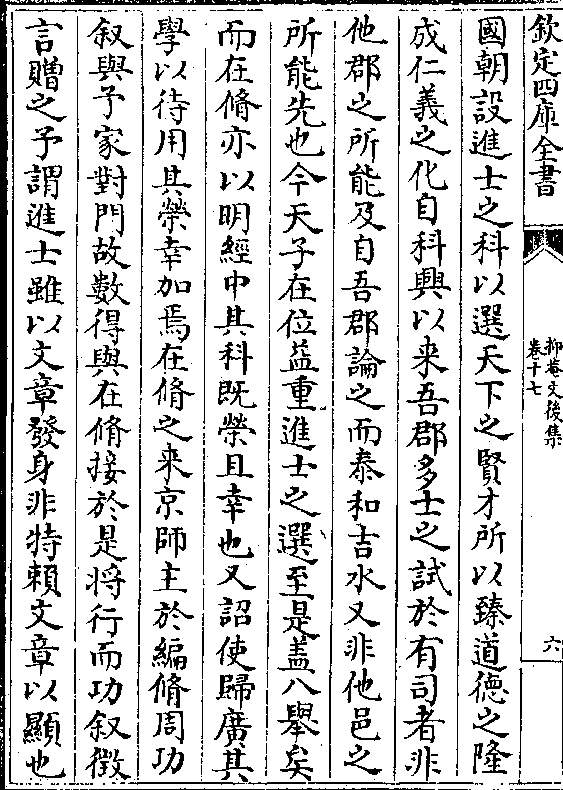 欽定四庫全書
抑菴文後集
卷十七
六
國朝設進士之科以選天下之賢才所以臻道德之隆
成仁義之化自科興以来吾郡多士之試於有司者非
他郡之所能及自吾郡論之而泰和吉水又非他邑之
所能先也今天子在位益重進士之選至是盖八舉矣
而在脩亦以明經中其科既榮且幸也又詔使歸廣其
學以待用其榮幸加焉在脩之来京師主於編脩周功
叙與予家對門故數得與在脩接於是将行而功叙徴
言贈之予謂進士雖以文章發身非特頼文章以顯也